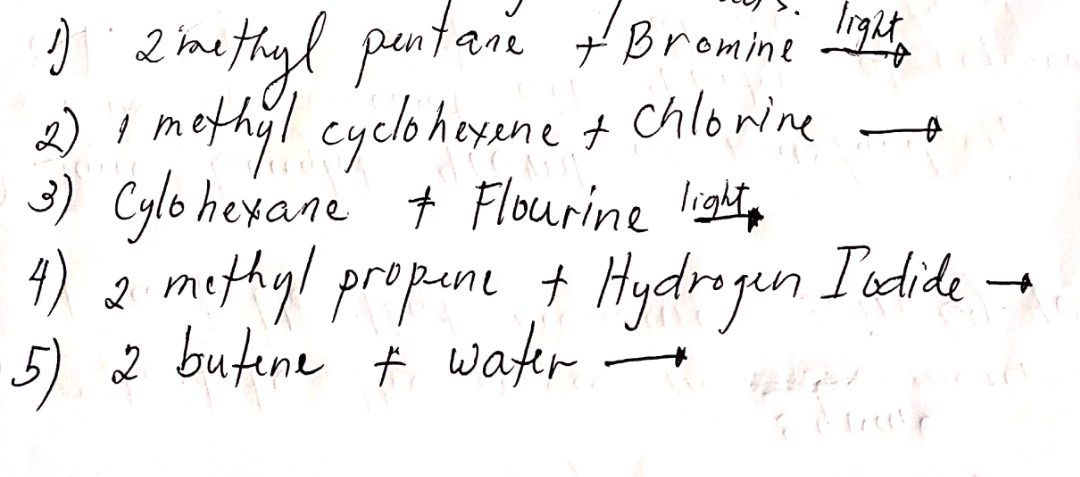 1) 2 methyl pentane + Bromine light →
2) 1 methyl cyclohexene + Chlorine →
3) Cylohexane + Flourine light →
4) 2 methyl propene + Hydrogen Iodide →
5) 2 butene + water →